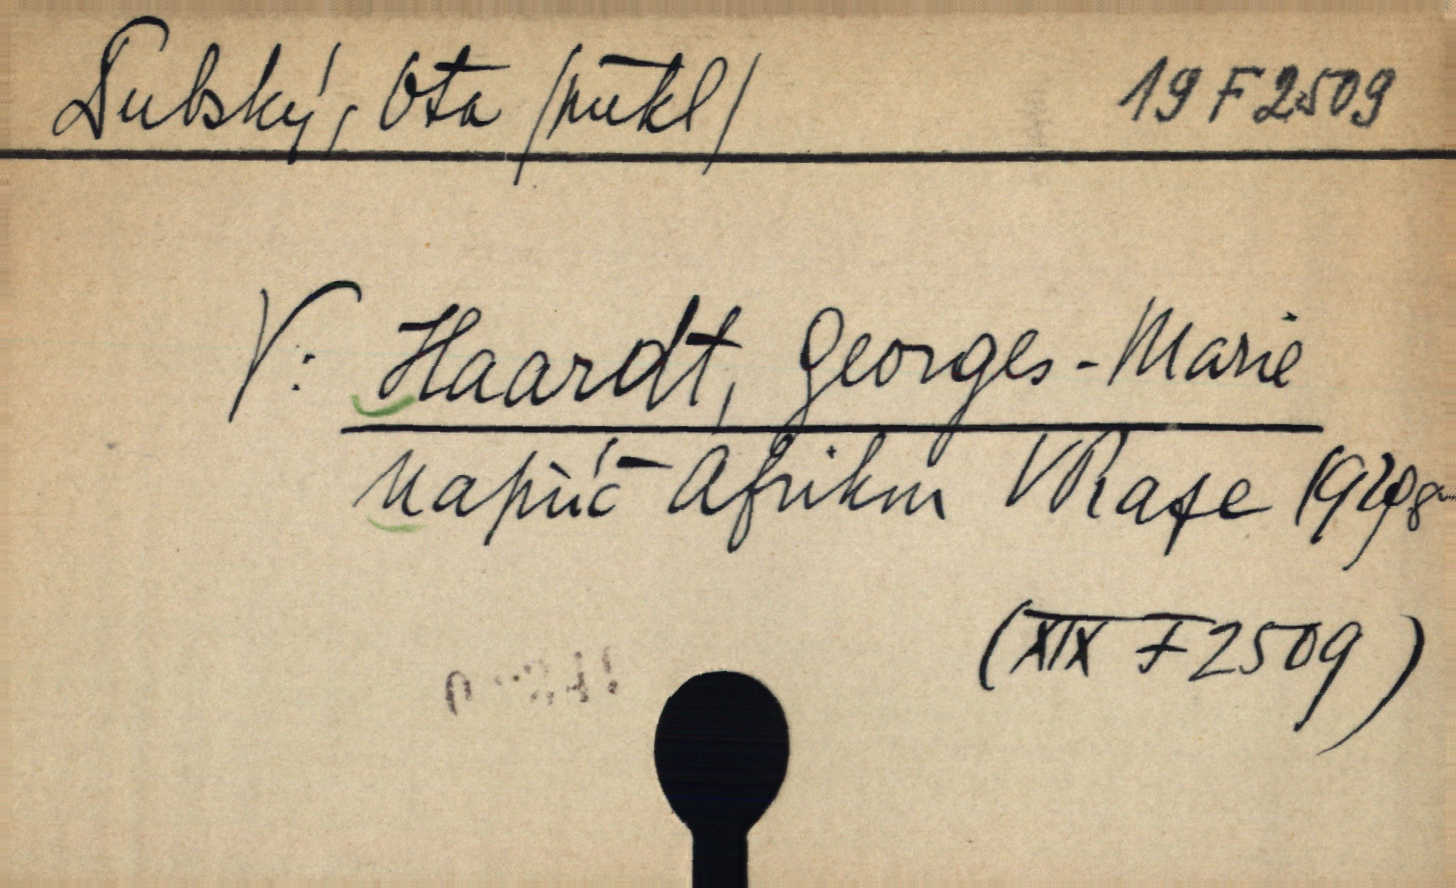 Dubský, Ota /překl/ 19 F 2509
V: Haardt, Georges-Marie
Napříč Afrikou V Praze 1929
(XIX F 2509)